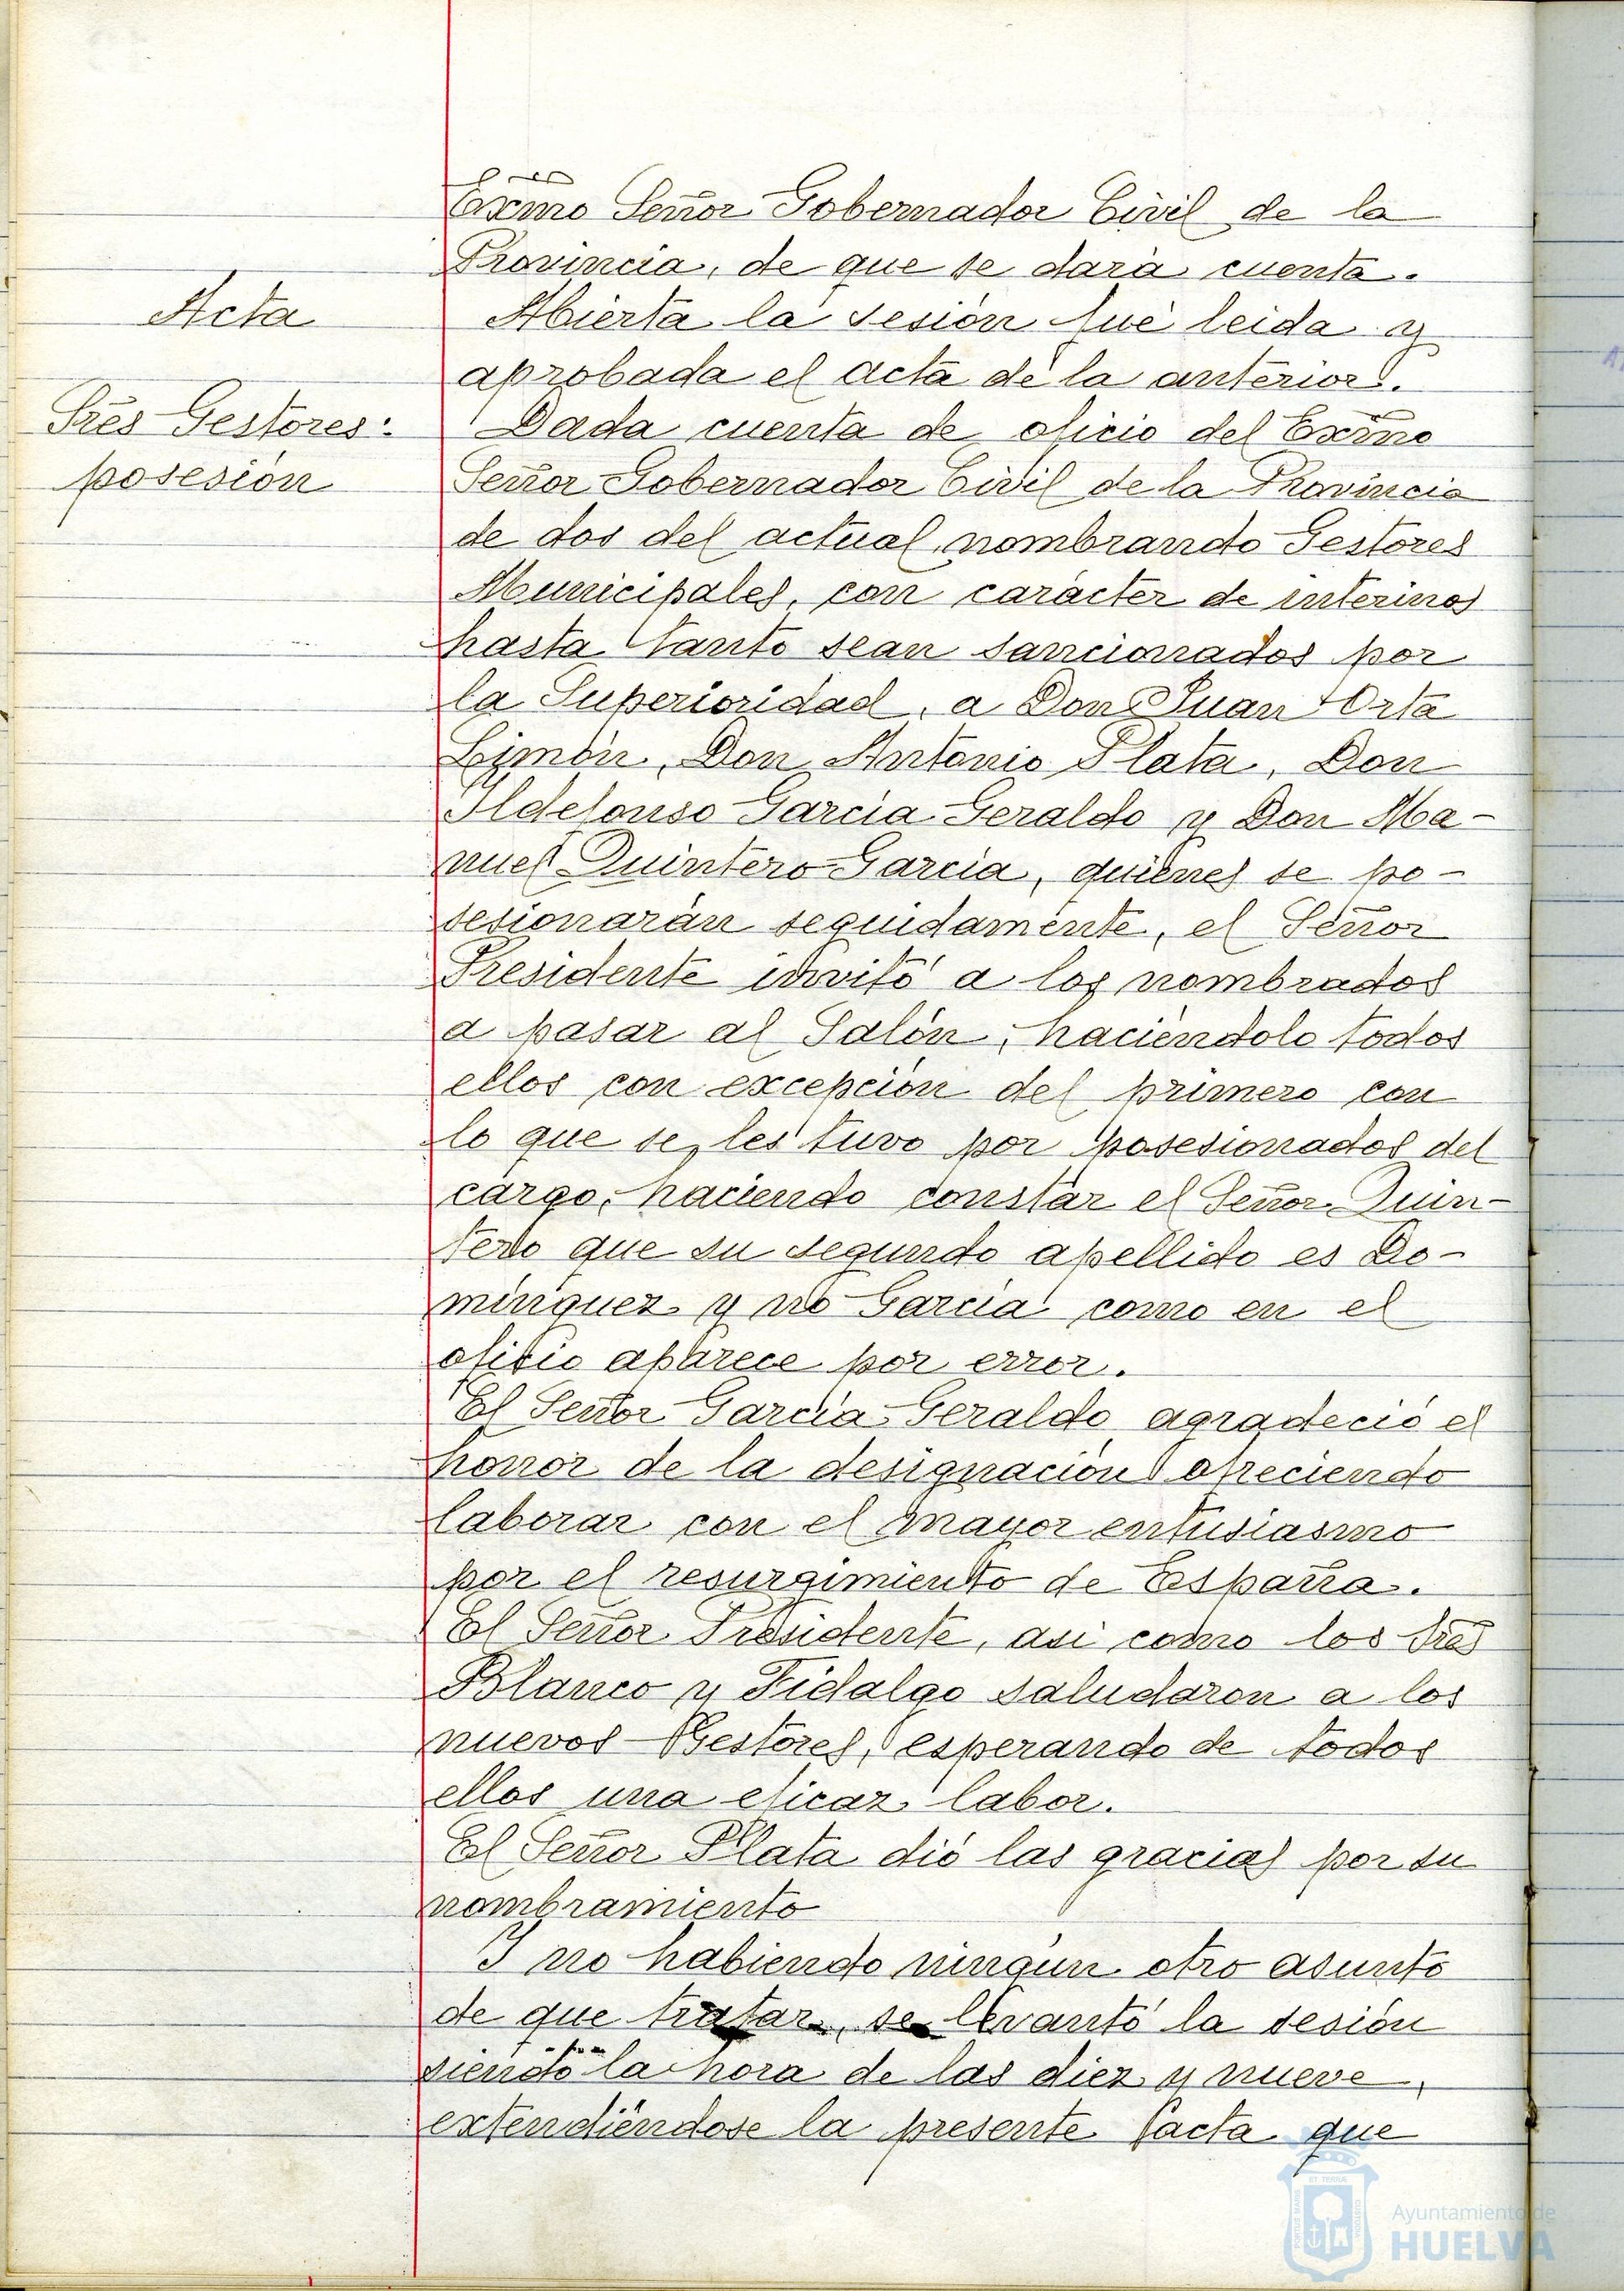 Exmo Señor Gobernador Civil de la
Provincia, de que se dará cuenta.
Acta
Abierta la sesión fué leida y
aprobada el acta de la anterior.
Tres Gestores:
posesión
Dada cuenta de oficio del Exmo
Señor Gobernador Civil de la Provincia
de dos del actual, nombrando Gestores
Municipales, con carácter de interinos
hasta tanto sean sancionados por
la Superioridad, a Don Juan Orta
Limón, Don Antonio Plata, Don
Ildefonso Garcia Geraldo y Don Ma-
nuel Quintero Garcia, quienes se po-
sesionarán seguidamente, el Señor
Presidente invitó a los nombrados
a pasar al Salón, haciéndolo todos
ellos con excepción del primero con
lo que se les tuvo por posesionados del
cargo, haciendo constar el Señor Quin-
tero que su segundo apellido es Do-
minguez y no Garcia como en el
oficio aparece por error.
El Señor Garcia Geraldo agradeció el
honor de la designación ofreciendo
laborar con el mayor entusiasmo
por el resurgimiento de España.
El Señor Presidente, asi como los Sres
Blanco y Fidalgo saludaron a los
nuevos Gestores, esperando de todos
ellos una eficaz labor.
El Señor Plata dió las gracias por su
nombramiento
Y no habiendo ningún otro asunto
de que tratar, se levantó la sesión
siendo la hora de las diez y nueve,
extendiéndose la presente acta que
Ayuntamiento de
HUELVA